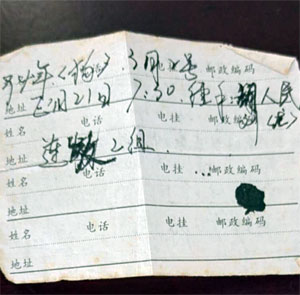 年(狗) 3月 号
电 邮政编码
正月21日 7:30 人民
地址
姓名 电话 电挂 邮政编码
莲 二组
地址
姓名 电话 电挂 邮政编码
地址
姓名 电话 电挂 邮政编码
地址